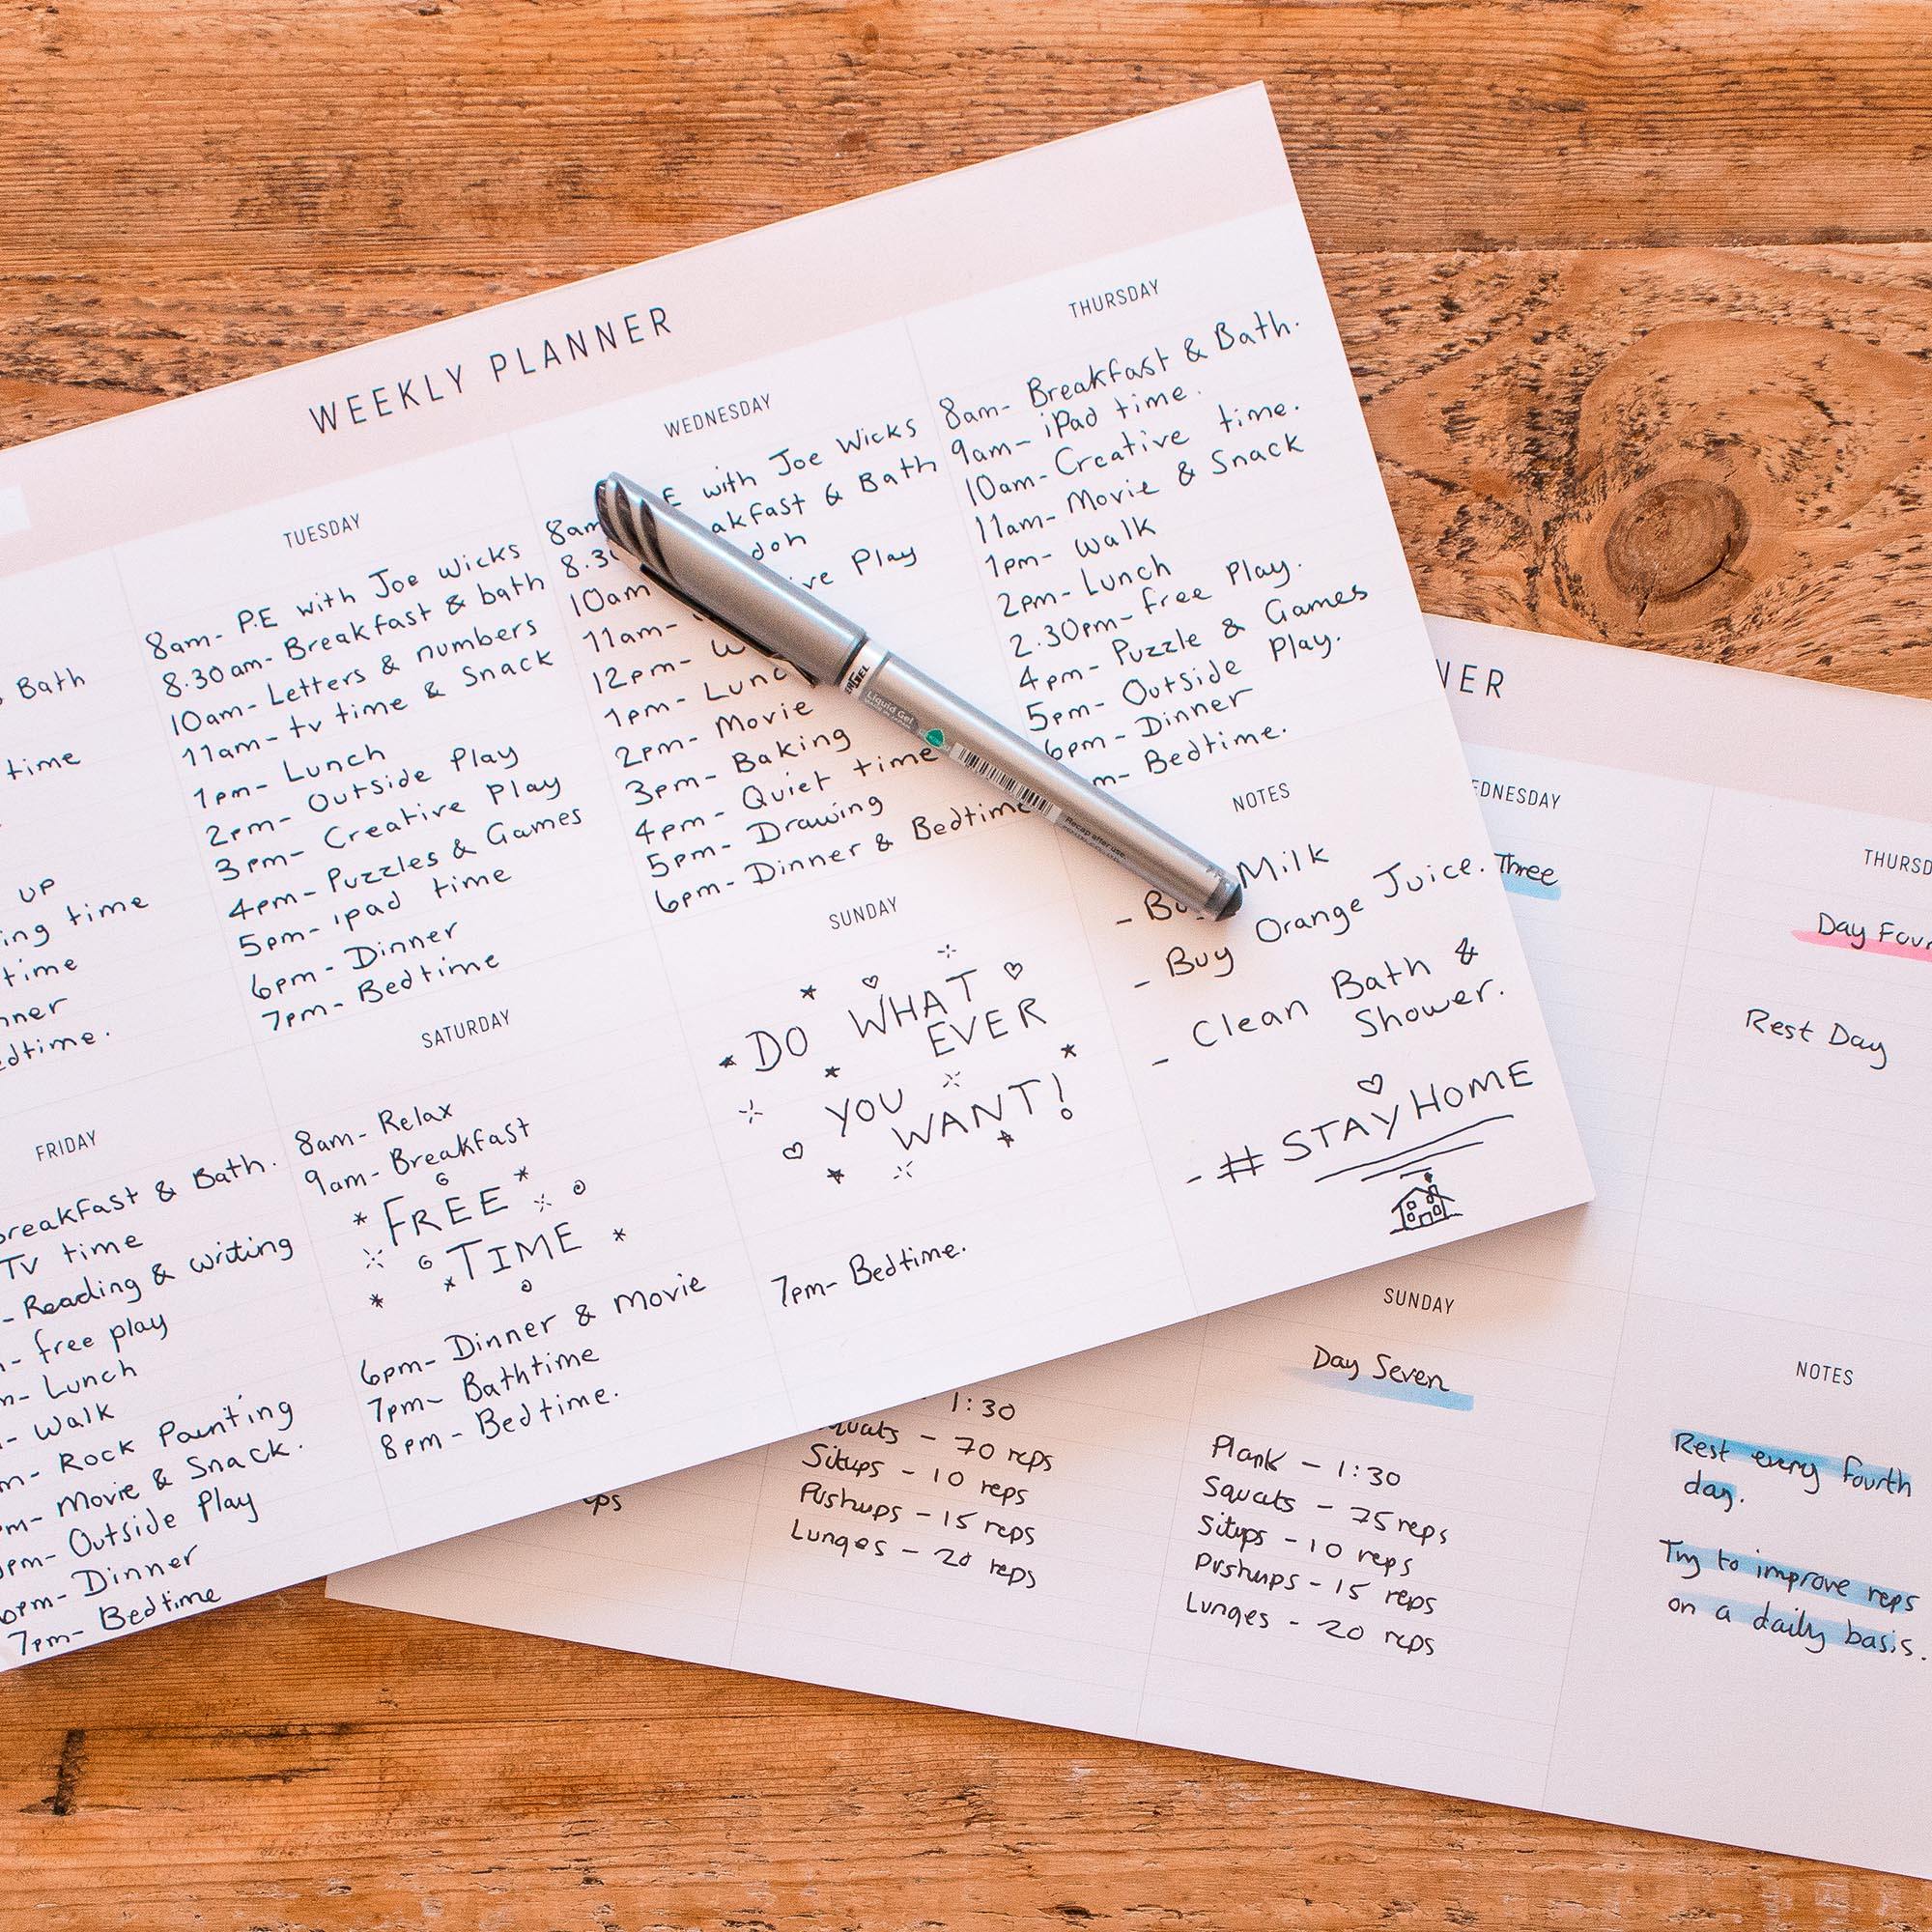 WEEKLY PLANNER
Bath
time
up
ing time
time
nner
edtime.
TUESDAY
8am- P.E with Joe Wicks
8.30am- Breakfast & bath
10am- Letters & numbers
11am- tv time & Snack
1pm- Lunch
2pm- Outside Play
3pm- Creative Play
4pm- Puzzles & Games
5pm- ipad time
6pm- Dinner
7pm- Bedtime
WEDNESDAY
8am E with Joe Wicks
8.3 akfast & Bath
10am doh
11am- ve Play
12pm- W
1pm- Lunc
2pm- Movie
3pm- Baking
4pm- Quiet time
5pm- Drawing
6pm- Dinner & Bedtime
THURSDAY
8am- Breakfast & Bath.
9am- iPad time.
10am- Creative time.
11am- Movie & Snack
1pm- Walk
2pm- Lunch
2.30pm- free Play.
4pm- Puzzle & Games
5pm- Outside Play.
6pm- Dinner
m- Bedtime.
FRIDAY
reakfast & Bath.
TV time
- Reading & writing
- free play
- Lunch
- Walk
m- Rock Painting
m- Movie & Snack.
pm- Outside Play
pm- Dinner
7pm- Bedtime
SATURDAY
8am- Relax
9am- Breakfast
FREE
TIME
6pm- Dinner & Movie
7pm- Bathtime
8pm- Bedtime.
SUNDAY
DO WHAT
EVER
YOU
WANT!
7pm- Bedtime.
NOTES
- Bu Milk
- Buy Orange Juice.
- Clean Bath &
Shower.
- # STAY HOME
Liquid Gel
Recap after use.
NER
EDNESDAY
Three
THURSD
Day Four
Rest Day
1:30
quats - 70 reps
Situps - 10 reps
Pushups - 15 reps
Lunges - 20 reps
SUNDAY
Day Seven
Plank - 1:30
Squats - 75 reps
Situps - 10 reps
Pushups - 15 reps
Lunges - 20 reps
NOTES
Rest every fourth
day.
Try to improve reps
on a daily basis.